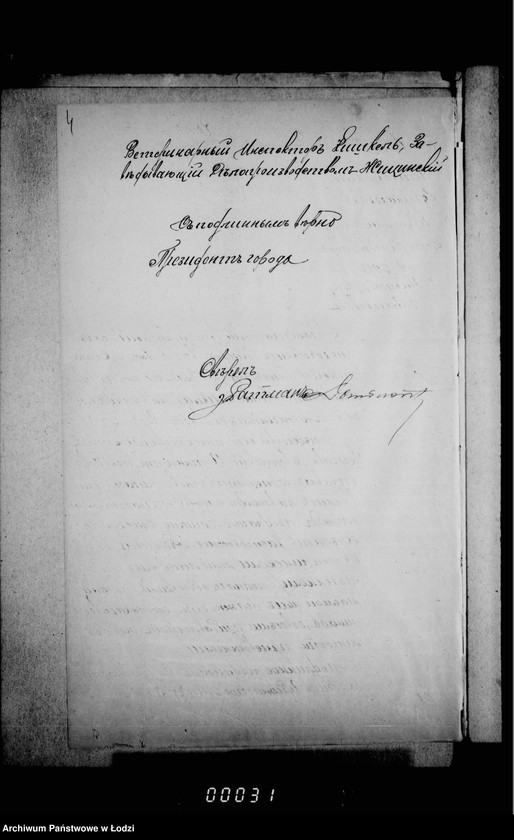 4
Ветеринарный Инспекторъ Кишкель, За-
вѣдывающій Дѣлопроизводствомъ Жещинскій
Съ подлиннымъ вѣрно
Президентъ города
Свѣрялъ
Ратманъ
00031
Archiwum Państwowe w Łodzi